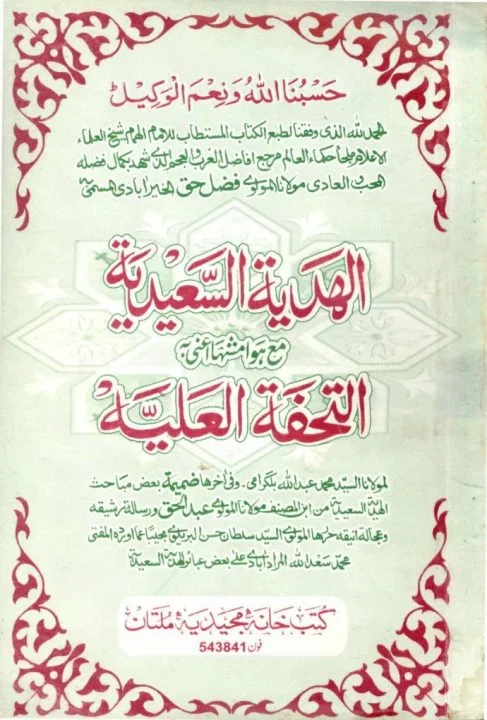 حَسْبُنَا اللّٰهُ وَنِعْمَ الْوَكِيْلُ
الحمد للہ الذی وفقنا لطبع الکتاب المستطاب للامام الہمام شیخ العلماء
الاعلام ملجأ حکماء العالم مرجع افاضل العرب والعجم الذی شہد بکمال فضلہ
المحب والعادی مولانا المولوی فضل حق الخیرآبادی المسمٰی بہ
الهدية السَّعيدية
مع ہوامشہا اعنی بہ
التحفة العلیَّة
لمولانا السید محمد عبد اللہ بلگرامی۔ وفی آخرها ضمیمة بعض مباحث
الهدیة السعیدیة من ابن المصنف مولانا المولوی عبد الحق ورسالة رشیقه
وعجالة انیقه حررها المولوی السید سلطان حسن البریلوی مجیبا عما اورده المفتی
محمد سعد اللہ المرادآبادی علی بعض عبائر الهدیة السعیدیة
کتب خانہ مجیدیہ ملتان
فون 543841